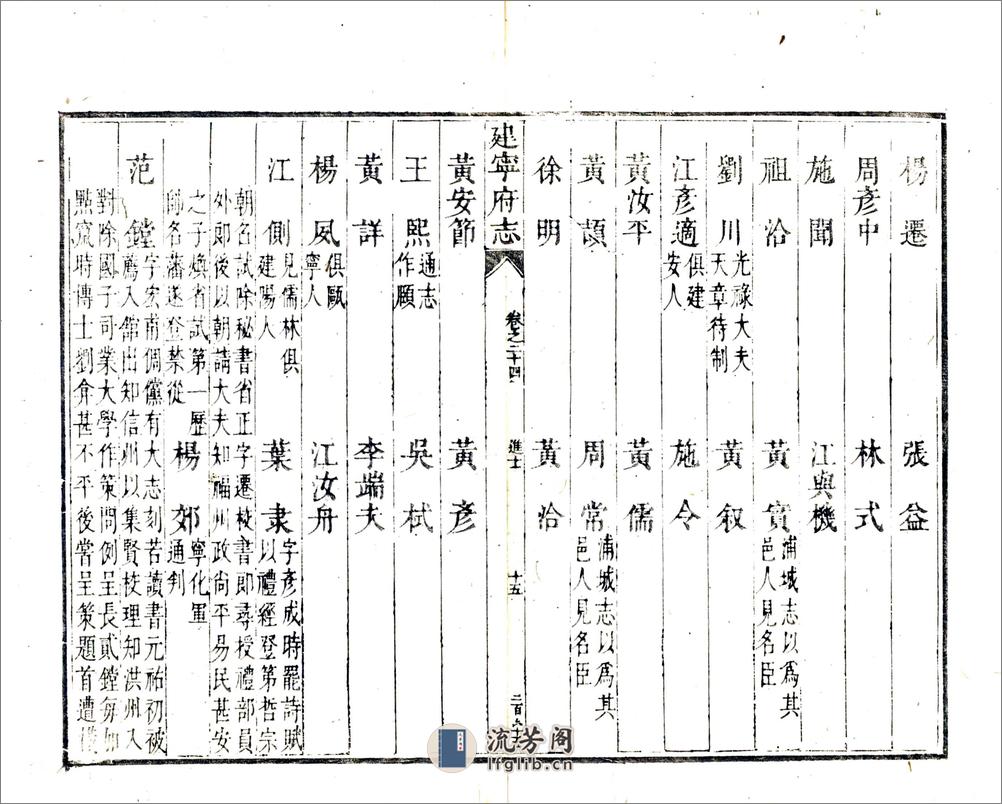 楊遷 張益
周彥中 林式
施聞 江與機
祖洽 黃實 浦城志以爲其
邑人見名臣
劉川 光祿大夫
天章待制 黃叙
江彥適 俱建
安人 施令
黃汝平 黃儒
黃頡 周常 浦城志以爲其
邑人見名臣
徐明 黃洽
建寧府志 卷之二十四 進士 十五
黃安節 黃彥
王熙 通志
作願 吳栻
黃詳 李端夫
楊夙 俱甌
寧人 江汝舟
江側 見儒林俱
建陽人 葉隶 字彥成時罷詩賦
以禮經登第哲宗
朝名試除秘書省正字遷校書即尋授禮部員
外郎後以朝請大夫知福州政尚平易民甚安
之子煥省試第一歷
師名藩遂登禁從 楊郊 寧化軍
通判
范鏜 字宏甫倜儻有大志刻若讀書元祐初被
薦入館出知信州以集賢校理知洪州入
對除國子司業大學作策問例呈長貳鏜每加
點竄時博士劉弇甚不平後嘗呈策題首遭
流芳阁
lfglib.cn